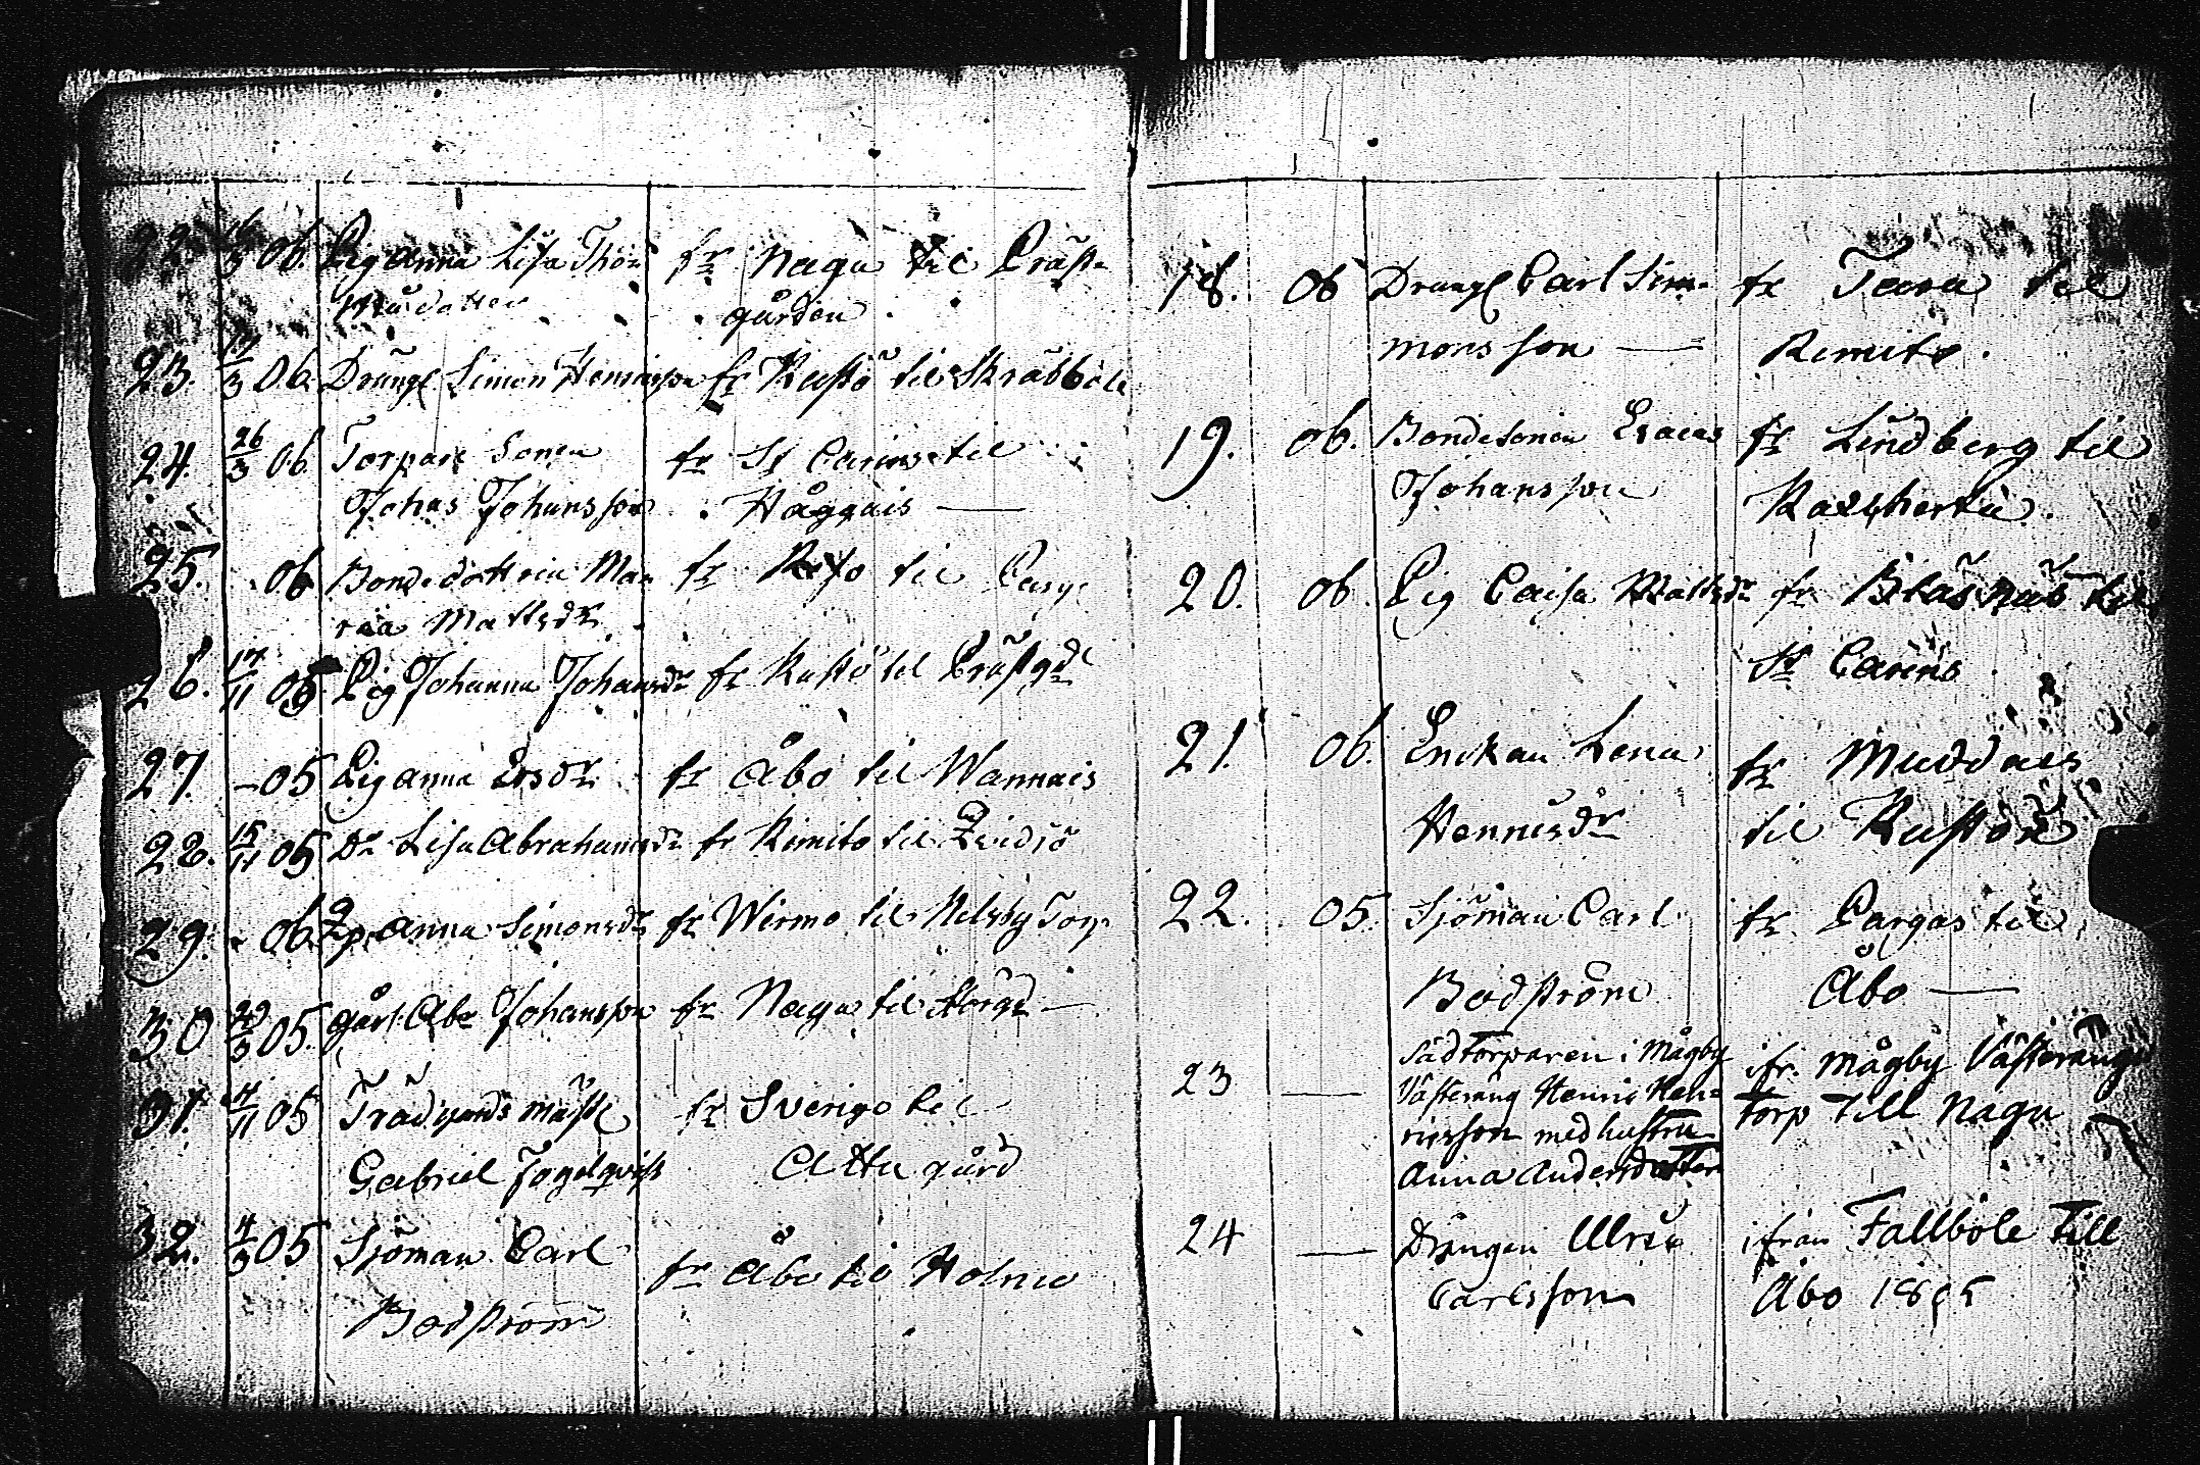 22. 16/3 06. Pig Anna Lisa Tho=
masdotter
fr Nagu til Präst=
gården
23. 17/3 06. Drängl Simon Henricsson fr Kustö til Skräbböle
24. 26/3 06 Torpare Sonen
Johas Johansson
fr St Carins til
Håggais —
25. 06 Bondedottren Ma=
ria Mattsdr
fr til Parg.
26. 17/11 05 Pig Johanna Johansdr fr Kustö til Prästgdn
27 — 05 Pig Anna Ersdr fr Åbo til Wannais
28. 15/11 05 Do Lisa Abrahamsdr fr Kimito til
29. - 06. Anna Simonsdr fr Wirmo til Nilsby Torp
30 29/3 05. gårl. Abr Johansson fr Nagu til Storgd —
31. 4/11 05 Trädgårds mäst
Gabriel Fogelqvist
fr Sverige til
Attu gård
32. 4/3 05 Sjöman Carl
Bodström
fr Åbo til Holmo
18. 06 Drängl Carl Sim=
monsson —
fr Tara til
Kimito.
19. 06. Bondesonen Esaias
Johansson
fr Lindberg til
20. 06. Pig Caisa Mattsdr fr Bläsnäs til
St Carins
21. 06. Enckan Lena
Hennisdr
fr Muddais
til Kustö
22. 05. Sjöman Carl
Bodström
fr Pargas til
Åbo —
23 — Städtorparen i Mågby
Västeräng Henric Hen=
ricsson med hustru
Anna Andersdotter
ifr. Mågby Västerängs
Torp Till Nagu
24 — Drängen Ulric
Carlsson
ifrån Fallböle Till
Åbo 1805